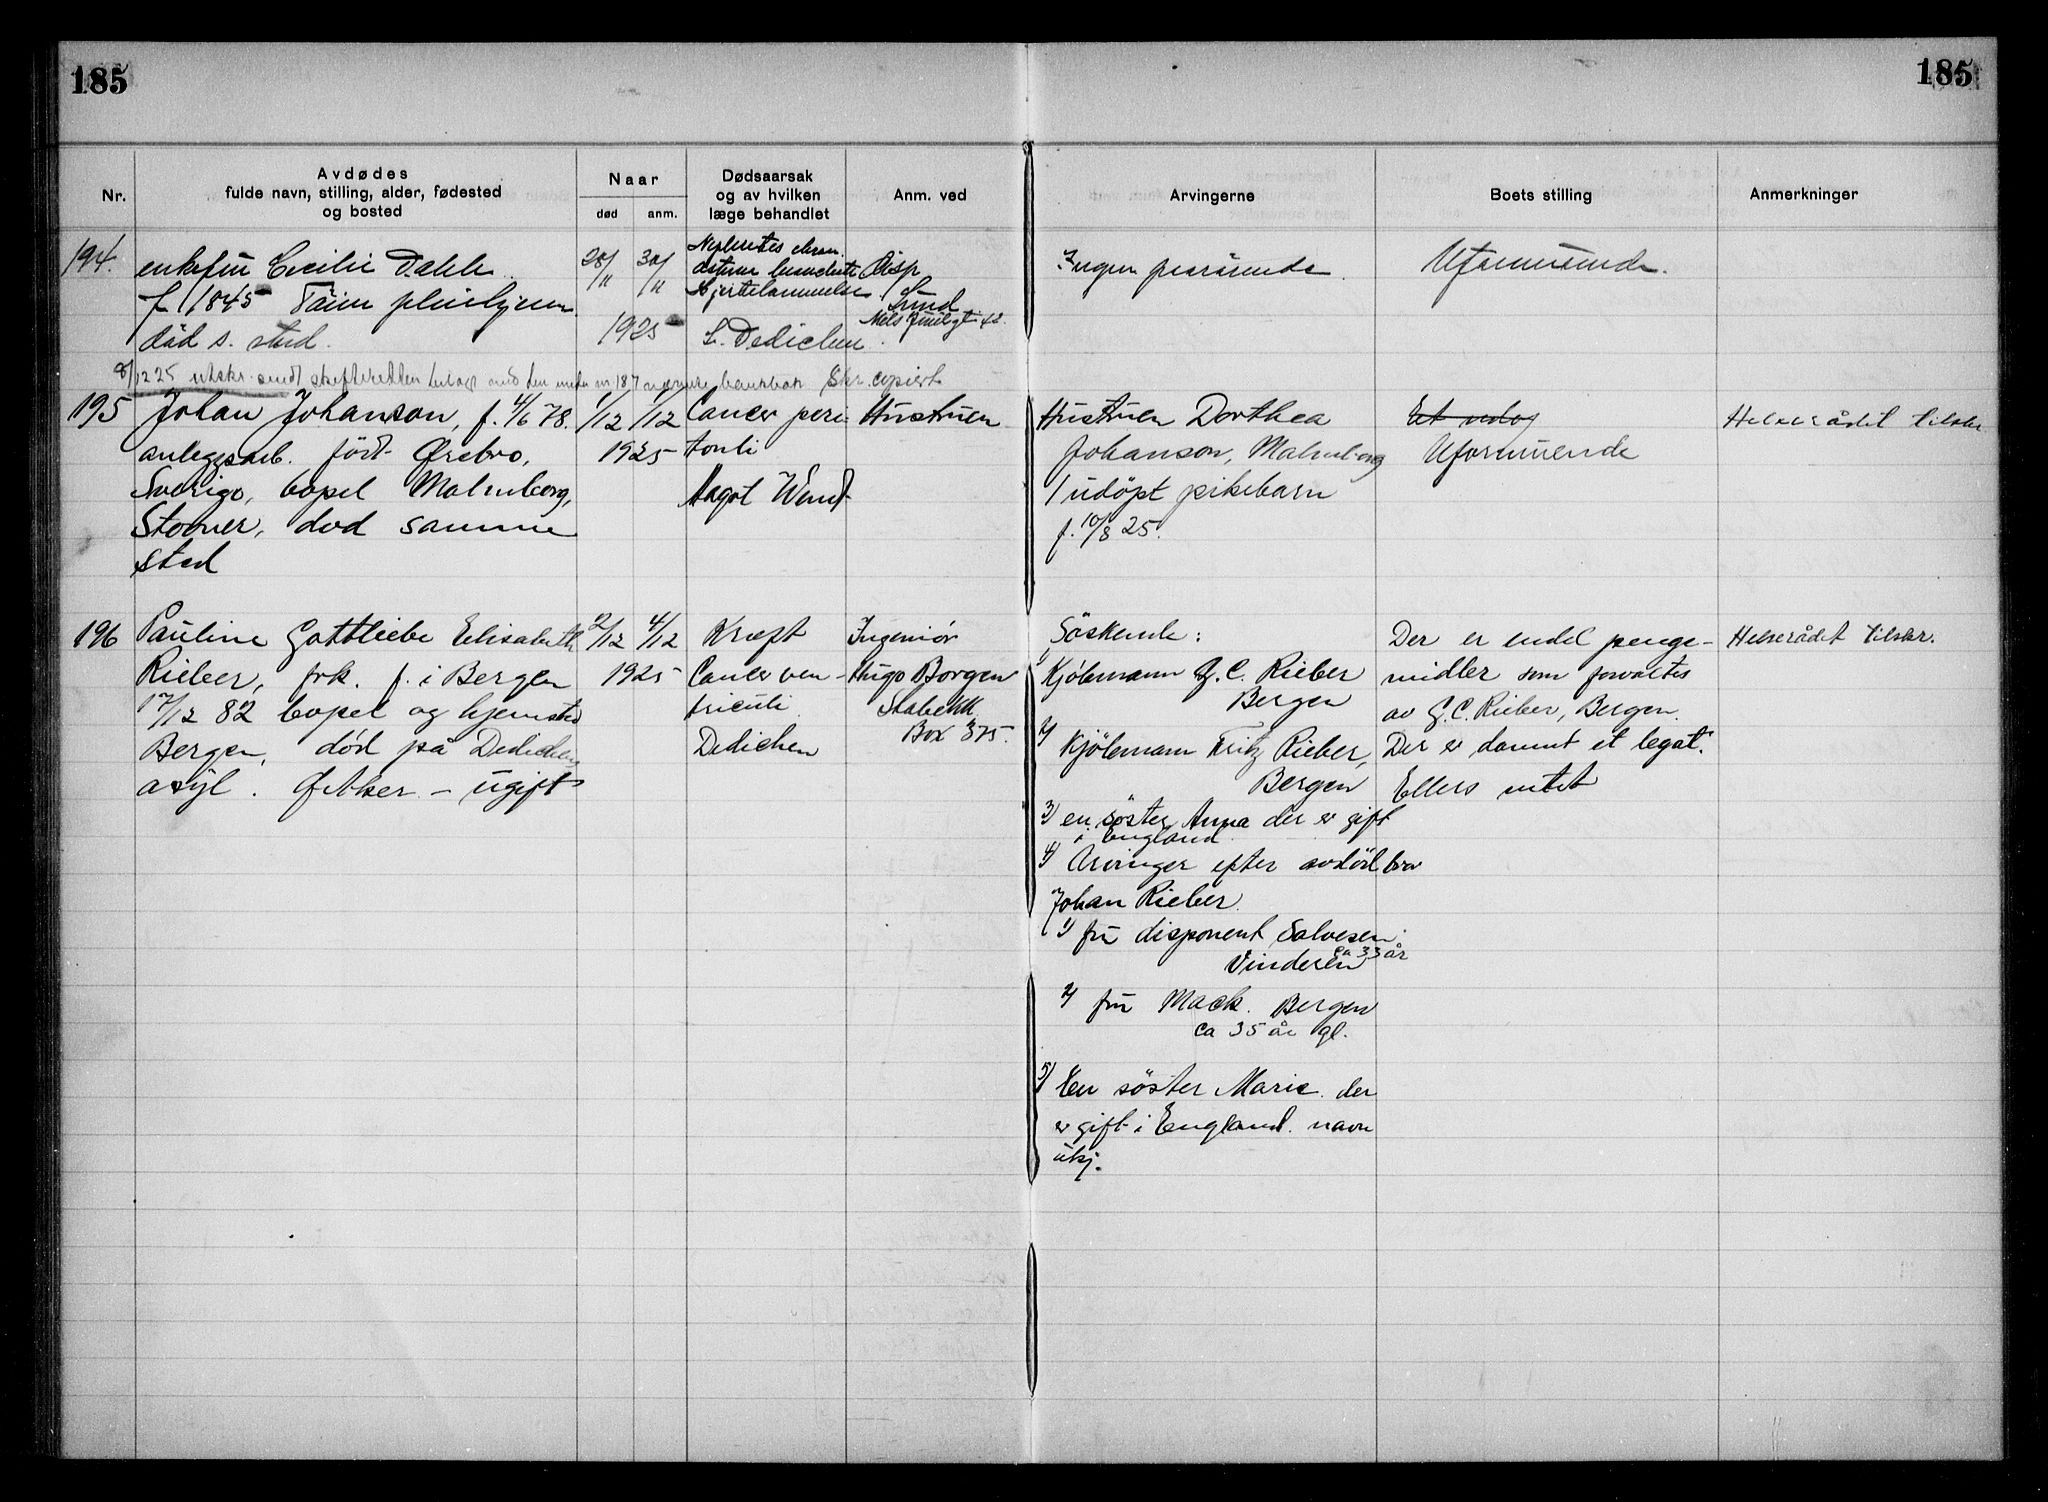 185
185
Nr.
Avdødes
fulde navn, stilling, alder, fødested
og bosted
Naar
død
anm.
Dødsaarsak
og av hvilken
læge behandlet
Anm. ved
Arvingerne
Boets stilling
Anmerkninger
194.
enkefru Cecilie Dahle
f 1845 Tåsen pleiehjem
död s. sted.
28/11
30/11
1925
Disp
Lund
L. Dedichen
Ingen
Uformuende.
8/12 25 utskr. sendt skifteretten Skr. copiert
195
Johan Johanson, f. 4/6 78.
anlegsarb. född Ørebro,
Sverige, bopel Malmberg,
Stovner, död samme
sted
1/12
1/12
1925
Cancer peri-
tonli
Aagot Wend
Hustruen
Hustruen Dorthea
Johanson, Malmberg
1 udöpt pikebarn
f. 10/8 25.
Uformuende
Helserådet tilskr.
196
Pauline Gottliebe Elisabeth
Rieber, frk. f. i Bergen
17/12 82 bopel og hjemsted
Bergen, död på Dedichens
asyl. Ø Aker – ugift
2/12
4/12
1925
Kræft
Cancer ven-
triculi
Dedichen
Ingeniör
Hugo Borgen
Stabekk
Box 375.
Söskende:
Kjöbmann G. C. Rieber
Bergen
2) Kjöbmann Fritz Rieber,
Bergen
3) en söster Anna der er gift
i England
4) Arvinger efter avdöd bror
Johan Rieber
1) fru disponent Salvesen
Vinderen ca 33 år
2) fru Mack. Bergen
ca 35 år gl.
5) En söster Marie der
er gift i England. navn
ukj.
Der er endel penge-
midler som forvaltes
av G. C. Rieber, Bergen.
Der er dannet et legat.
Ellers intet
Helserådet tilskr.